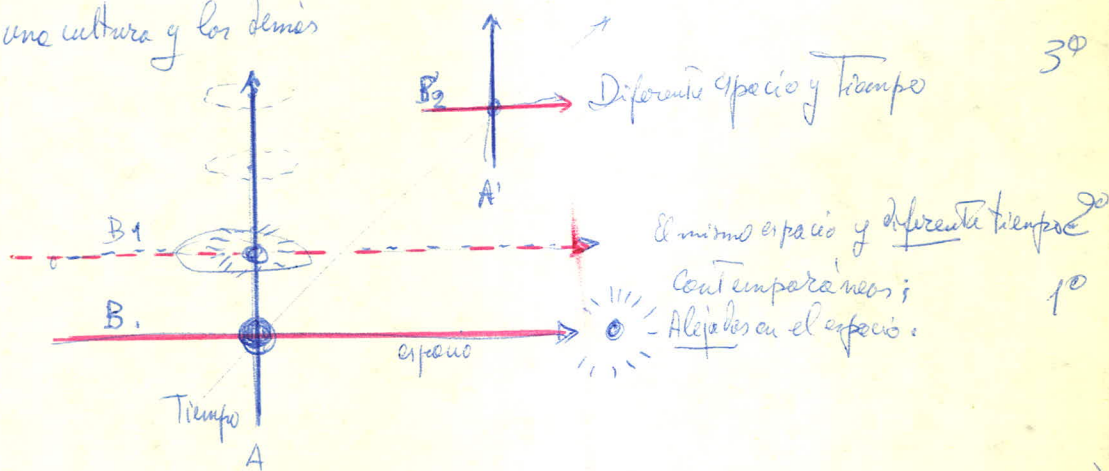 una cultura y los demás
3º
B2
Diferente espacio y Tiempo
A'
B1
El mismo espacio y diferente tiempo 2º
Contemporáneos;
1º
B.
Alejados en el espacio.
espacio
Tiempo
A